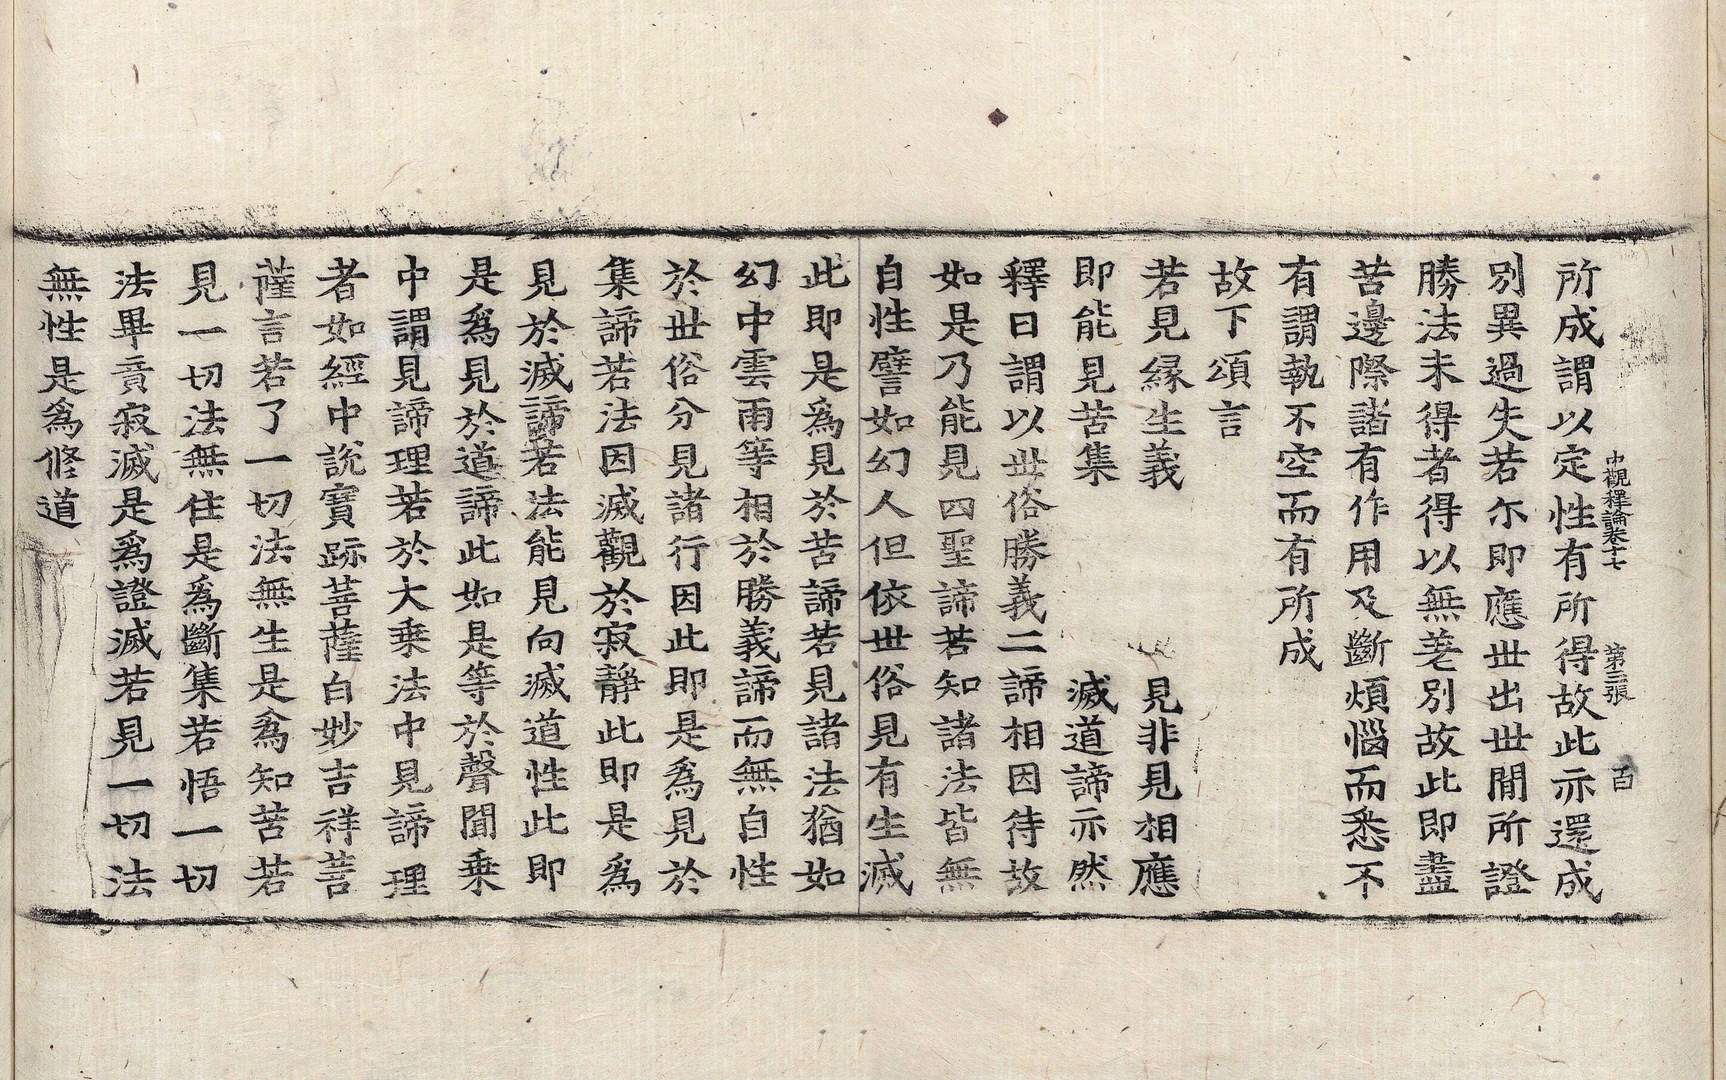 中觀釋論卷十七　第三張　百
所成謂以定性有所得故此亦還成
別異過失若尒即應世出世間所證
勝法未得者得以無差別故此即盡
苦邊際諸有作用及斷煩惱而悉不
有謂執不空而有所成
故下頌言
若見縁生義　見非見相應
即能見苦集　滅道諦亦然
釋曰謂以世俗勝義二諦相因待故
如是乃能見四聖諦若知諸法皆無
自性譬如幻人但依世俗見有生滅
此即是爲見於苦諦若見諸法猶如
幻中雲雨等相於勝義諦而無自性
於世俗分見諸行因此即是爲見於
集諦若法因滅觀於寂靜此即是爲
見於滅諦若法能見向滅道性此即
是爲見於道諦此如是等於聲聞乗
中謂見諦理若於大乗法中見諦理
者如經中說寳跡菩薩白妙吉祥菩
薩言若了一切法無生是爲知苦若
見一切法無住是爲斷集若悟一切
法畢竟寂滅是爲證滅若見一切法
無性是爲修道